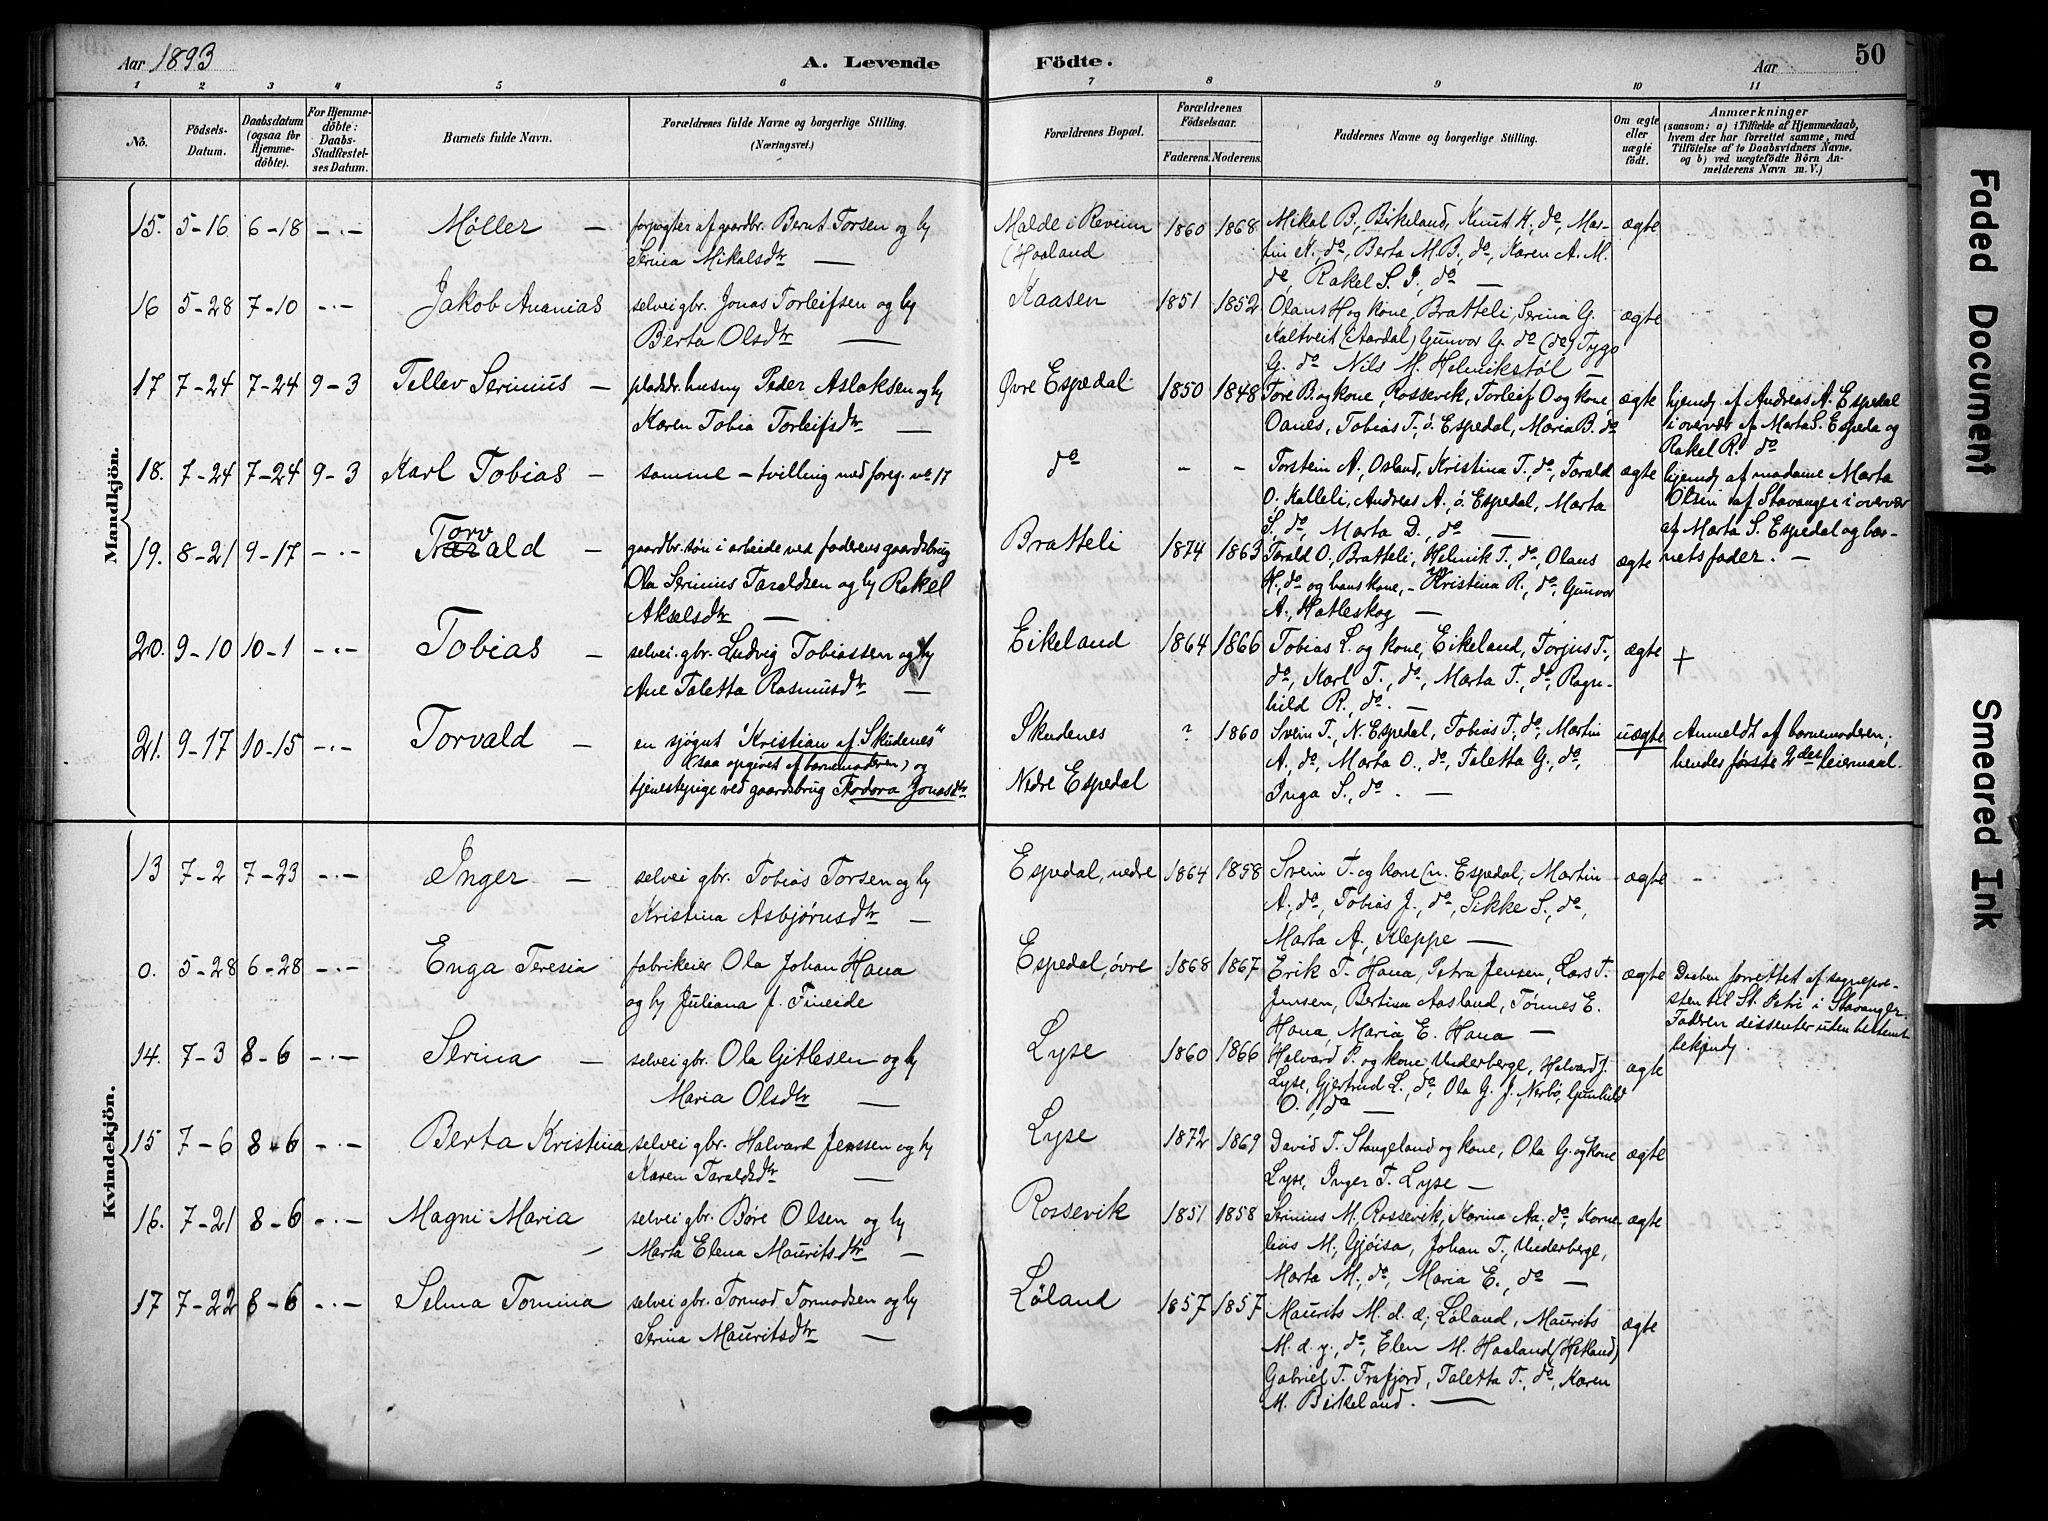 Aar 1893
A. Levende Födte.
Aar
50
1 2 3 4 5 6 7 8 9 10 11
No.
Födsels-Datum.
Daabsdatum (ogsaa for Hjemmedöbte).
For Hjemmedöbte: Daabs-Stadfæstelses Datum.
Barnets fulde Navn.
Forældrenes fulde Navne og borgerlige Stilling. (Næringsvei.)
Forældrenes Bopæl.
Forældrenes Födselsaar.
Faderens. Moderens.
Faddernes Navne og borgerlige Stilling.
Om ægte eller uægte födt.
Anmærkninger
(saasom: a) i Tilfælde af Hjemmedaab, hvem der har forrettet samme, med Tilföielse af to Daabsvidners Navne. og b) ved uægtefödte Börn Anmelderens Navn m. V.)
Mandkjön.
15. 5-16 6-18 -.- Møller -
forpagter af gaardbr. Bernt Torsen og h
Serina Mikalsdtr —
Malde i Reveim
(Haaland
1860 1868
Mikal B., Birkeland, Knut K., do, Mar-
tin K., do, Berta M. B., do, Karen A. M.
do, Rakel S. J., do —
ægte
16 5-28 7-10 -.- Jakob Ananias
selvei gbr. Jonas Torleifsen og h
Berta Olsdtr —
Kaasen
1851 1852
Olaus H og kone, Bratteli, Serina G.
Kaltveit (Aardal) Gunvor G. do (do) Tygo
G. do Nils M. Helmikstøl —
ægte
17 7-24 7-24 9-3 Tellev Serinius -
pladsbr. husm Peder Aslaksen og h
Karen Tobia Torleifsdtr —
Øvre Espedal
1850 1848
Tore B. og kone, Rossevik, Torleif O og kone,
Oanes, Tobias T., ö. Espedal, Maria B. do
ægte
hjemdp. af Andreas A. Espedal
i overvær af Marta S. Espeda og
Rakel R. do
18. 7-24 7-24 9-3 Karl Tobias -
samme - tvilling med foreg. no 17
do
- -
Torstein A., Osland, Kristina T., do, Torald
O. Kalleli, Andreas A., ö. Espedal, Marta
S., do, Marta D., do —
ægte
hjemdp. af madame Marta
Olsen af Stavanger i overvær
af Marta S. Espedal og bar-
nets fader. —
19. 8-21 9-17 -.- Torvald -
gaardbr. søn i arbeide ved faderens gaardsbrug
Ola Serinius Taraldsen og h Rakel
Akselsdtr —
Bratteli
1874 1863
Torald O., Bratteli, Helmik T., do, Olaus
H., do og hans kone, - Kristina R., do, Gunvor
A., Hatleskog —
ægte
20. 9-10 10-1 -.- Tobias -
selvei. gbr. Ludvig Tobiassen og h
Ane Taletta Rasmusdtr —
Eikeland
1864 1866
Tobias L. og kone, Eikeland, Torjus T.,
do, Karl T., do, Marta T., do, Ragn-
hild R., do. —
ægte
+
21. 9-17 10-15 -.- Torvald -
en sjøgut "Kristian af Skudenes"
(saa opgivet af barnemoderen) og
tjenestepige ved gaardsbrug Teodora Jonasdtr
Skudenes
Nedre Espedal
? 1860
Svein T., N. Espedal, Tobias T., do, Martin
A., do, Marta O., do, Taletta G., do,
Inga S., do. —
uægte
Anmeldt af barnemoderen;
hendes første 2des leiermaal.
Kvindekjön.
13 7-2 7-23 -.- Inger -
selvei gbr. Tobias Torsen og h
Kristina Asbjørnsdtr —
Espedal, nedre
1864 1858
Svein T. og kone (n. Espedal, Martin
A., do, Tobias J., do, Sikke S., do,
Marta A., Kleppe —
ægte
-.-
0. 5-28 6-28 -.- Enga Teresia
fabrikeier Ola Johan Hana
og h Juliana f. Fineide
Espedal, övre
1868 1867
Erik T. Hana, Petra Jensen, Lars T.
Jensen, Bertina Aasland, Tönnes E.
Hana, Maria E. Hana —
ægte
Daaben forrettet af sognepre-
sten til St. Petri i Stavanger.
Fadren dissenter uden bestemt
bekjend.
14. 7-3 8-6 -.- Serina -
selvei gbr. Ola Gitlesen og h
Maria Olsdtr —
Lyse
1860 1866
Halvard P. og kone, Underberge, Halvard J.
Lyse, Gjertrud L., do, Ola G. J. Nerbø, Gunhild
O., do —
ægte
15 7-6 8-6 -.- Berta Kristina
selvei gbr. Halvard Jenssen og h
Karen Taraldsdtr —
Lyse
1872 1869
David T. Stangeland og kone, Ola G. og kone
Lyse, Inger T. Lyse —
ægte
16. 7-21 8-6 -.- Magni Maria -
selvei gbr. Børe Olsen og h
Marta Elena Mauritsdtr —
Rossevik
1851 1858
Serinius M. Rossevik, Karina Aa., do, Korne-
lius M., Gjöisa, Johan T., Underberge,
Marta M., do, Maria E., do —
ægte
17 7-22 8-6 -.- Selma Tomina
selvei gbr. Tormod Tormodsen og h
Serina Mauritsdtr —
Løland
1857 1857
Maurits M. d. e., Løland, Maurits
M. d. y., do, Elen M. Haaland (Hetland)
Gabriel T. Frafjord, Taletta T., do, Karen
M. Birkeland. —
ægte
Faded Document
Smeared Ink